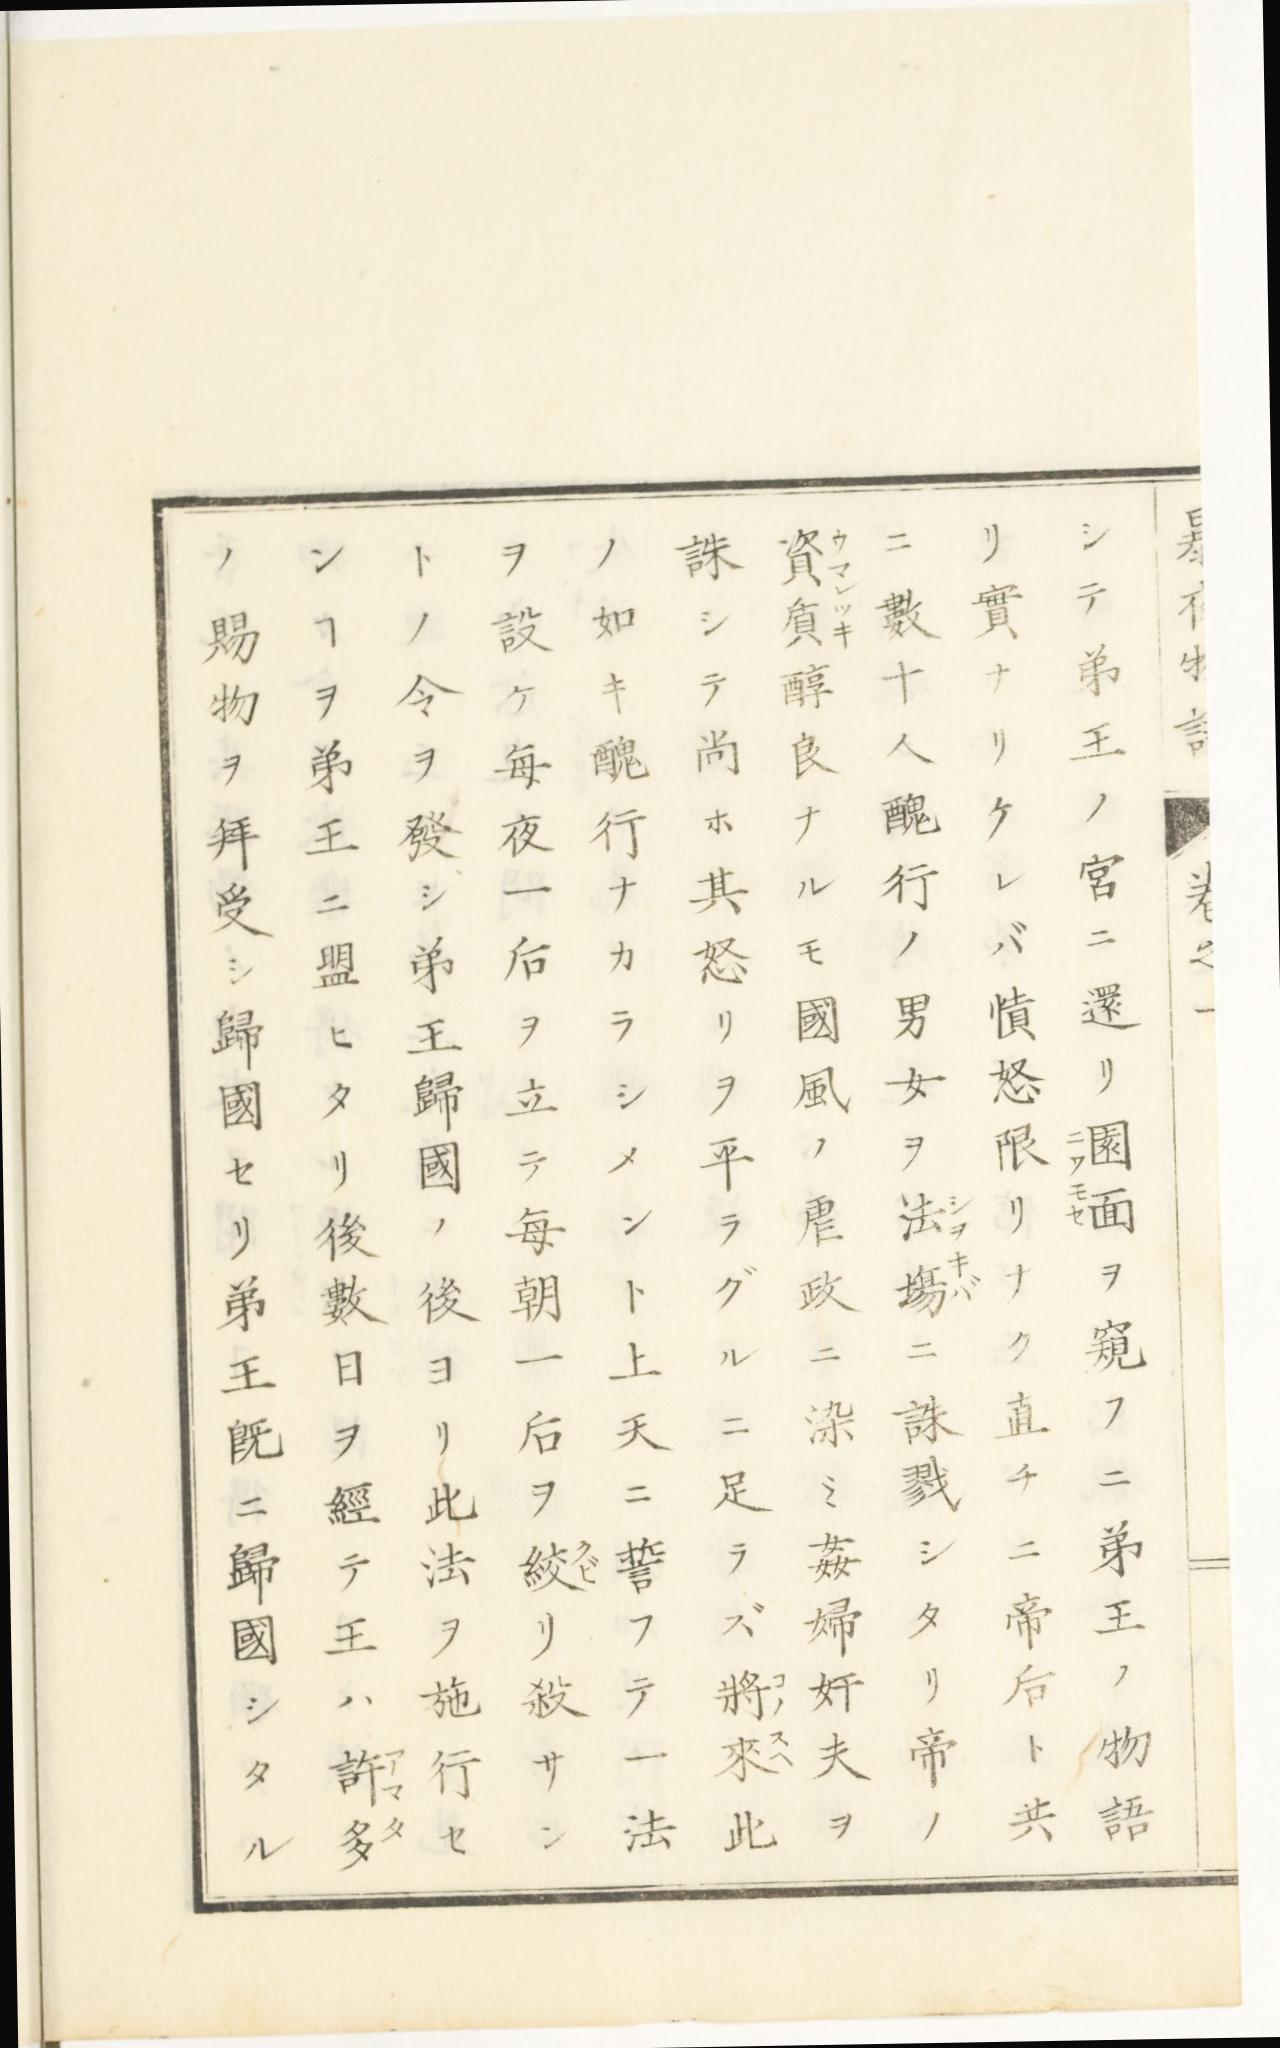 暴夜物語 卷之一
シテ弟王ノ宮ニ還リ園面ヲ窺フニ弟王ノ物語
リ實ナリケレバ憤怒限リナク直チニ帝后ト共
ニ數十人醜行ノ男女ヲ法塲ニ誅戮シタリ帝ノ
資質醇良ナルモ國風ノ虐政ニ染ミ姦婦奸夫ヲ
誅シテ尚ホ其怒リヲ平ラグルニ足ラズ將來此
ノ如キ醜行ナカラシメント上天ニ誓フテ一法
ヲ設ケ毎夜一后ヲ立テ毎朝一后ヲ絞リ殺サン
トノ令ヲ發シ弟王歸國ノ後ヨリ此法ヲ施行セ
ンヿヲ弟王ニ盟ヒタリ後數日ヲ經テ王ハ許多
ノ賜物ヲ拜受シ歸國セリ弟王既ニ歸國シタル
ニワモセ
シヲキバ
ウマンツキ
コノスヘ
クビ
アマタ